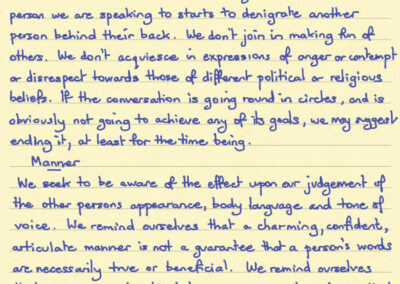 person we are speaking to starts to denigrate another
person behind their back. We don't join in making fun of
others. We don't acquiesce in expressions of anger or contempt
or disrespect towards those of different political or religious
beliefs. If the conversation is going round in circles, and is
obviously not going to achieve any of its goals, we may suggest
ending it, at least for the time being.
Manner
We seek to be aware of the effect upon our judgement of
the other persons appearance, body language and tone of
voice. We remind ourselves that a charming, confident,
articulate manner is not a guarantee that a person's words
are necessarily true or beneficial. We remind ourselves